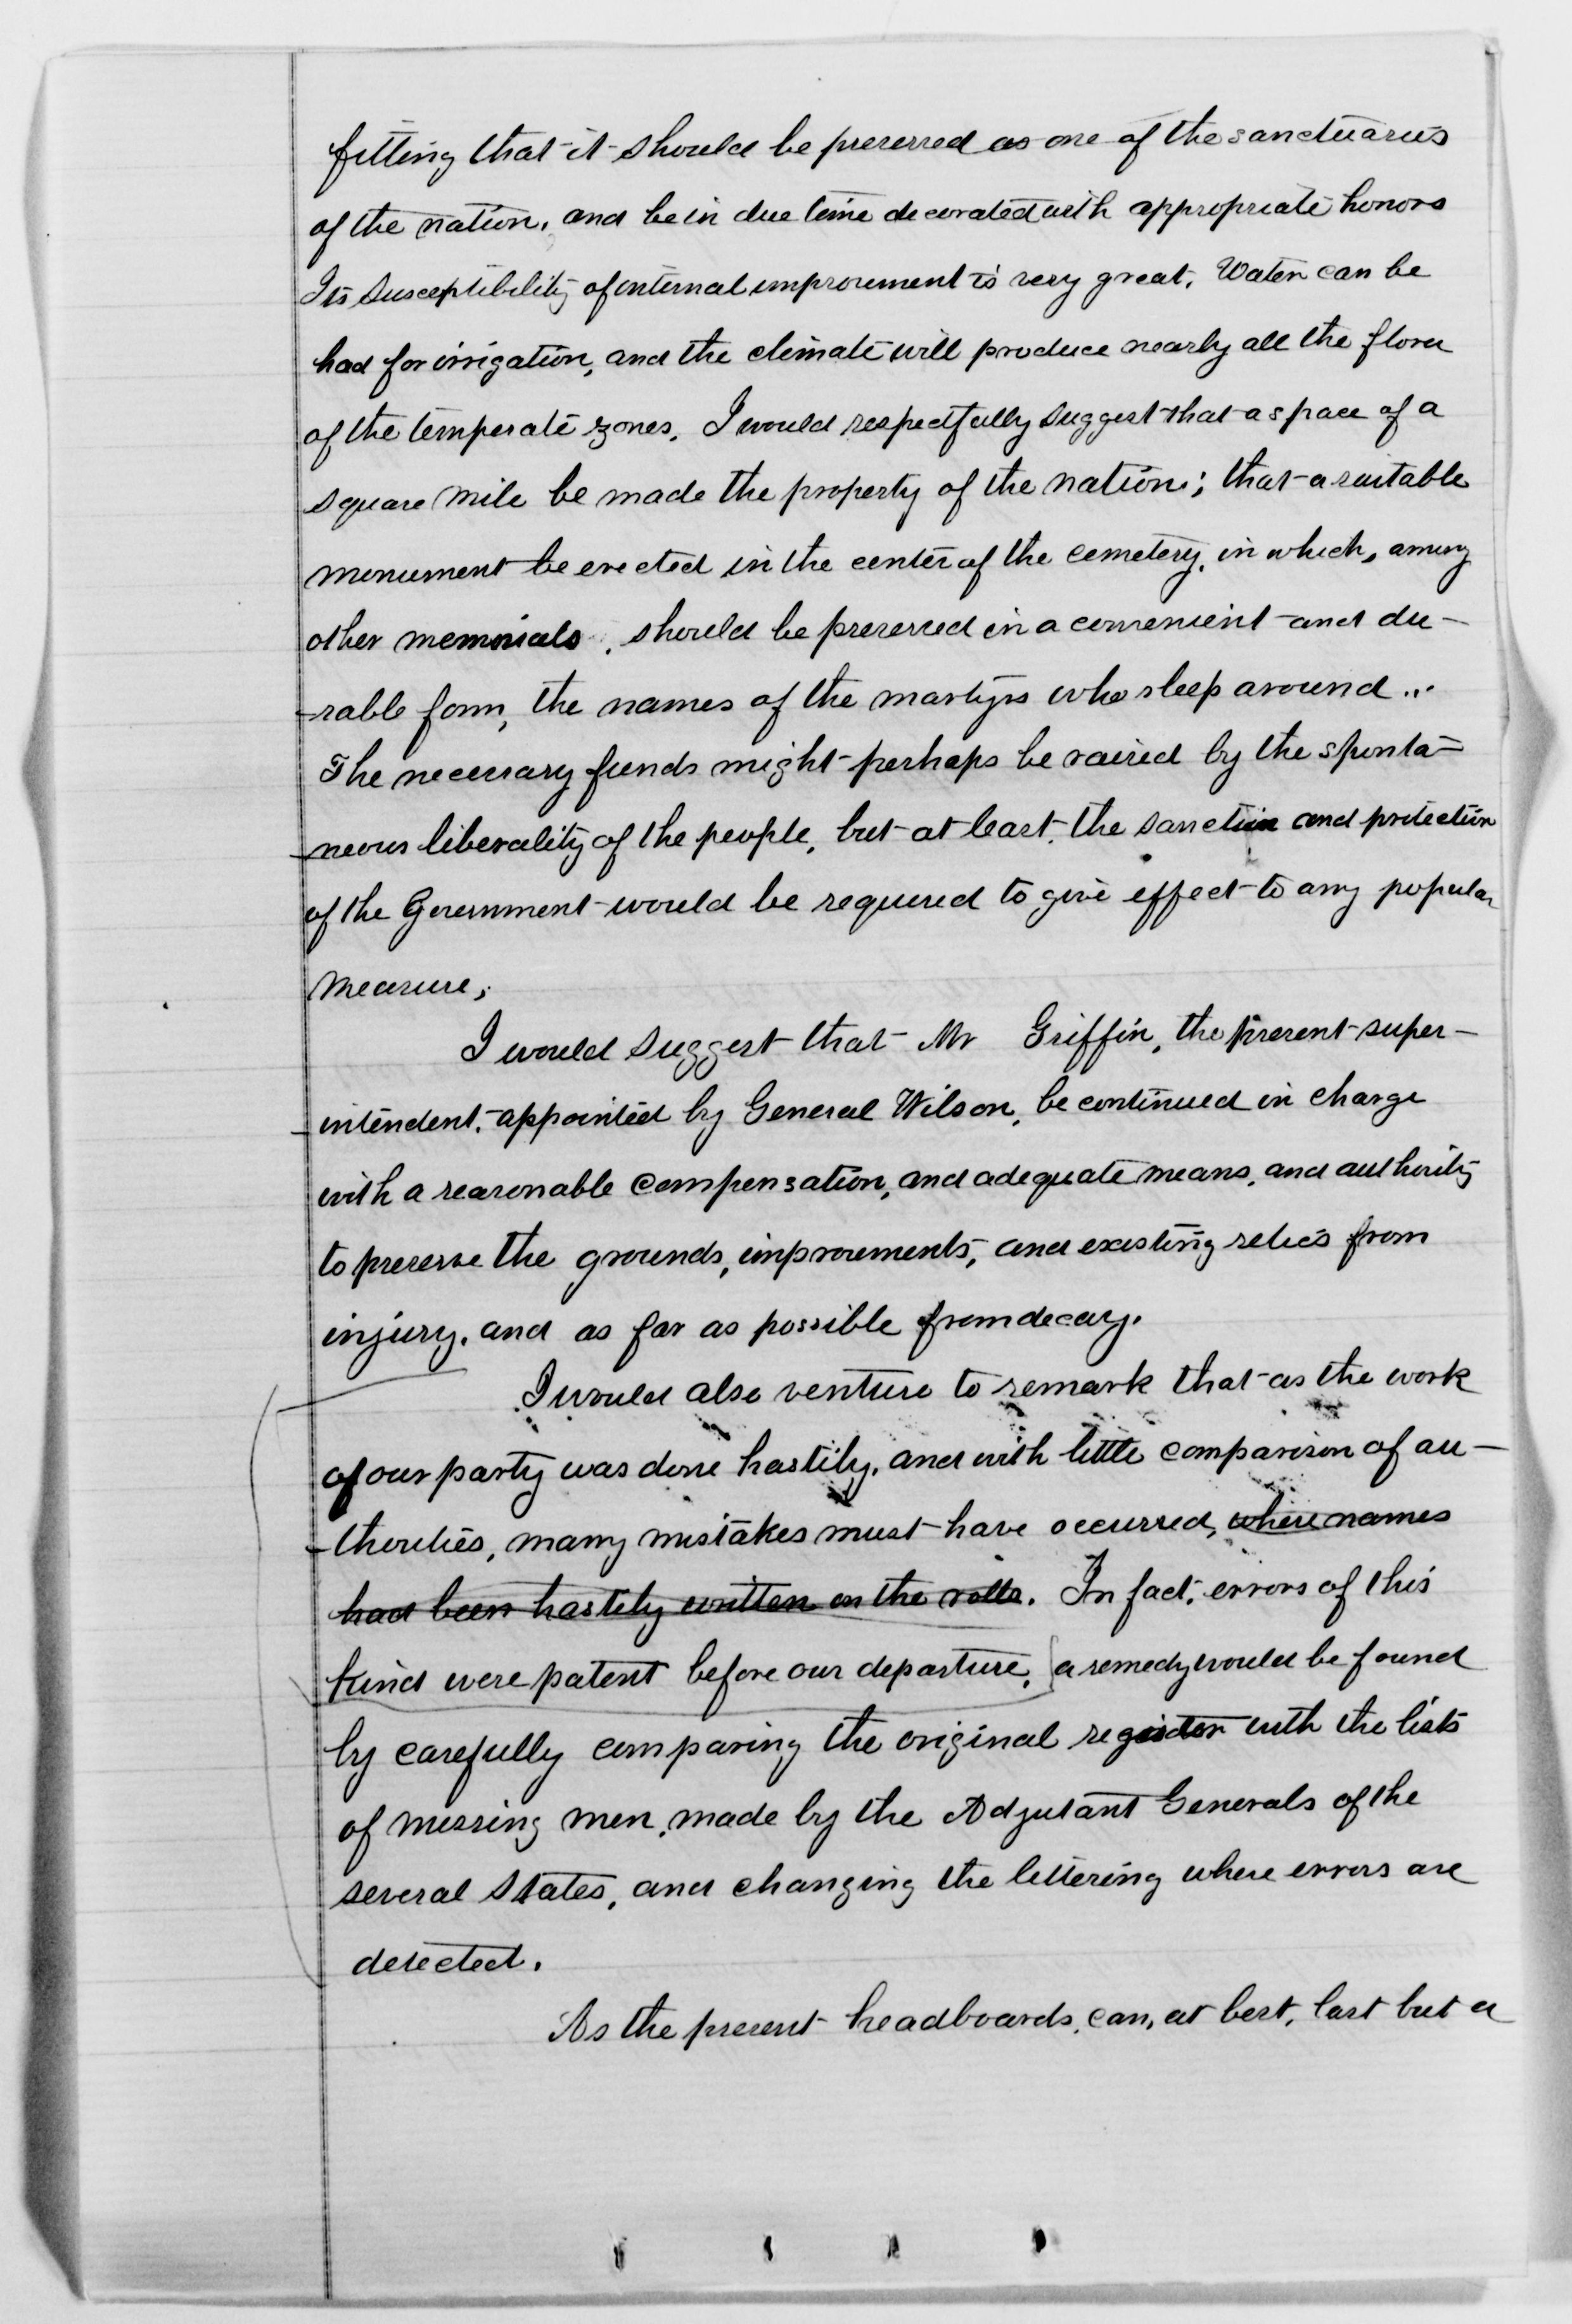 fitting that it should be preserved as one of the sanctuaries
of the nation, and be in due time decorated with appropriate honors
Its susceptibility of internal improvement is very great. Water can be
had for irrigation, and the climate will produce nearly all the flora
of the temperate zones. I would respectfully suggest that a space of a
square mile be made the property of the nation; that a suitable
monument be erected in the center of the cemetery, in which, among
other memorials, should be preserved in a convenient and du-
-rable form, the names of the martyrs who sleep around...
The necessary funds might perhaps be raised by the sponta-
-neous liberality of the people, but at least, the sanction and protection
of the Government would be required to give effect to any popular
measure,
I would suggest that Mr Griffin, the present super-
-intendent, appointed by General Wilson, be continued in charge
with a reasonable compensation, and adequate means, and authority
to preserve the grounds, improvements, and existing relics from
injury, and as far as possible from decay.
I would also venture to remark that as the work
of our party was done hastily, and with little comparison of au-
-thorities, many mistakes must have occurred, where names
had been hastily written on the rolls. In fact, errors of this
kind were patent before our departure, a remedy would be found
by carefully comparing the original register with the lists
of missing men, made by the Adjutant Generals of the
several States, and changing the lettering where errors are
detected.
As the present headboards, can, at best, last but a